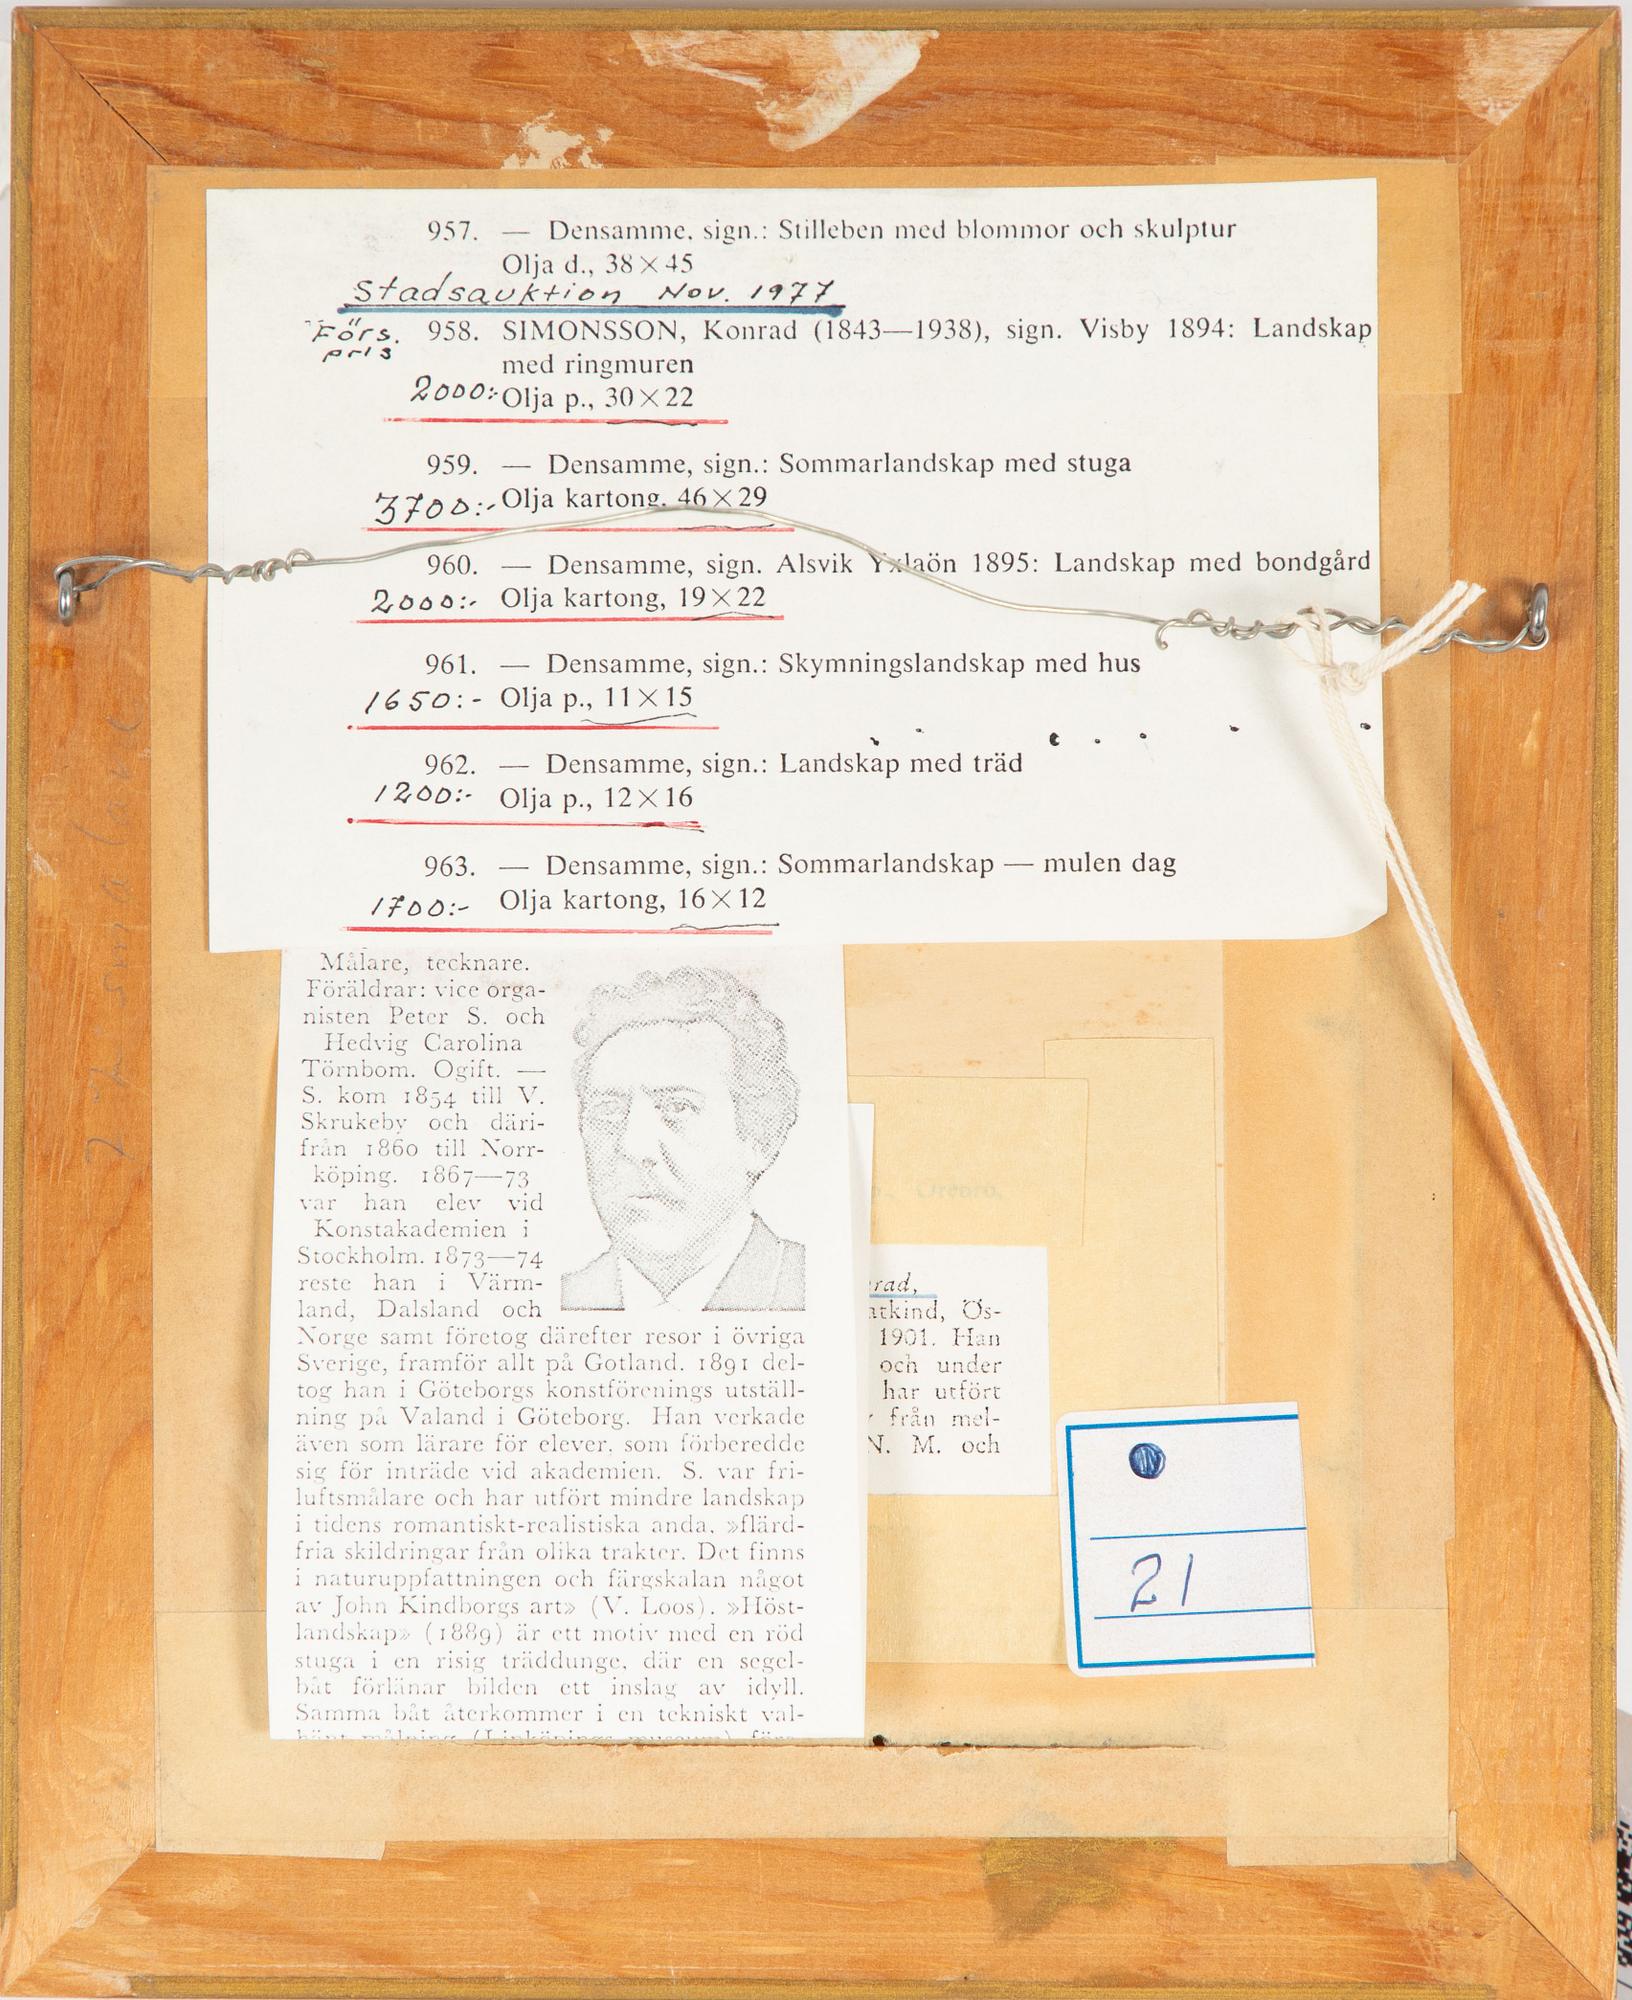 957. — Densamme, sign.: Stilleben med blommor och skulptur
Olja d., 38×45
Stadsauktion Nov. 1977
Förs. 958. SIMONSSON, Konrad (1843—1938), sign. Visby 1894: Landskap
pris med ringmuren
2000:- Olja p., 30×22
959. — Densamme, sign.: Sommarlandskap med stuga
3700:- Olja kartong, 46×29
960. — Densamme, sign. Alsvik Yxlaön 1895: Landskap med bondgård
2000:- Olja kartong, 19×22
961. — Densamme, sign.: Skymningslandskap med hus
1650:- Olja p., 11×15
962. — Densamme, sign.: Landskap med träd
1200:- Olja p., 12×16
963. — Densamme, sign.: Sommarlandskap — mulen dag
1700:- Olja kartong, 16×12
Målare, tecknare.
Föräldrar: vice orga-
nisten Peter S. och
Hedvig Carolina
Törnbom. Ogift. —
S. kom 1854 till V.
Skrukeby och däri-
från 1860 till Norr-
köping. 1867—73
var han elev vid
Konstakademien i
Stockholm. 1873—74
reste han i Värm-
land, Dalsland och
Norge samt företog därefter resor i övriga
Sverige, framför allt på Gotland. 1891 del-
tog han i Göteborgs konstförenings utställ-
ning på Valand i Göteborg. Han verkade
även som lärare för elever, som förberedde
sig för inträde vid akademien. S. var fri-
luftsmålare och har utfört mindre landskap
i tidens romantiskt-realistiska anda, »flärd-
fria skildringar från olika trakter. Det finns
i naturuppfattningen och färgskalan något
av John Kindborgs art» (V. Loos). »Höst-
landskap» (1889) är ett motiv med en röd
stuga i en risig träddunge, där en segel-
båt förlänar bilden ett inslag av idyll.
Samma båt återkommer i en tekniskt val-
hänt målning (Linköpings museum) före-
Örebro,
rad,
atkind, Ös-
1901. Han
och under
har utfört
från mel-
N. M. och
21